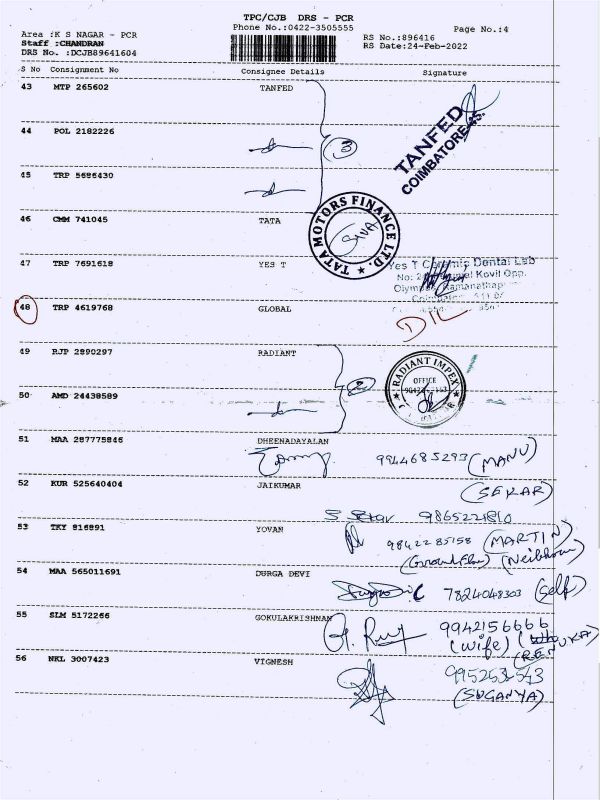 TPC/CJB DRS - PCR
Phone No.:0422-3505555
Page No.:4
Area :K S NAGAR - PCR
Staff :CHANDRAN
DRS No. :DCJB89641604
RS No.:896416
RS Date:24-Feb-2022
S No Consignment No Consignee Details Signature
43 MTP 265602 TANFED
TANFED
COIMBATORE
44 POL 2182226
03
45 TRP 5686430
46 CMM 741045 TATA
TATA MOTORS FINANCE LTD.
SIVA
47 TRP 7691618 YES T
Yes T Ceramic Dental Lab
Kovil Opp.
48 TRP 4619768 GLOBAL
D/L
49 RJP 2890297 RADIANT
RADIANT IMPEX
OFFICE
50 AMD 24438589
51 MAA 287775846 DHEENADAYALAN
9944685293 (MANU)
52 KUR 525640404 JAIKUMAR
(SEKAR)
9865221810
53 TKY 816891 YOVAN
9842285158 (MARTIN)
(Ground Floor) (Neibhour)
54 MAA 565011691 DURGA DEVI
7824048303 (Self)
55 SLM 5172266 GOKULAKRISHNAN
9942156666
(Wife) (RENUKA)
56 NKL 3007423 VIGNESH
(SUGANYA)